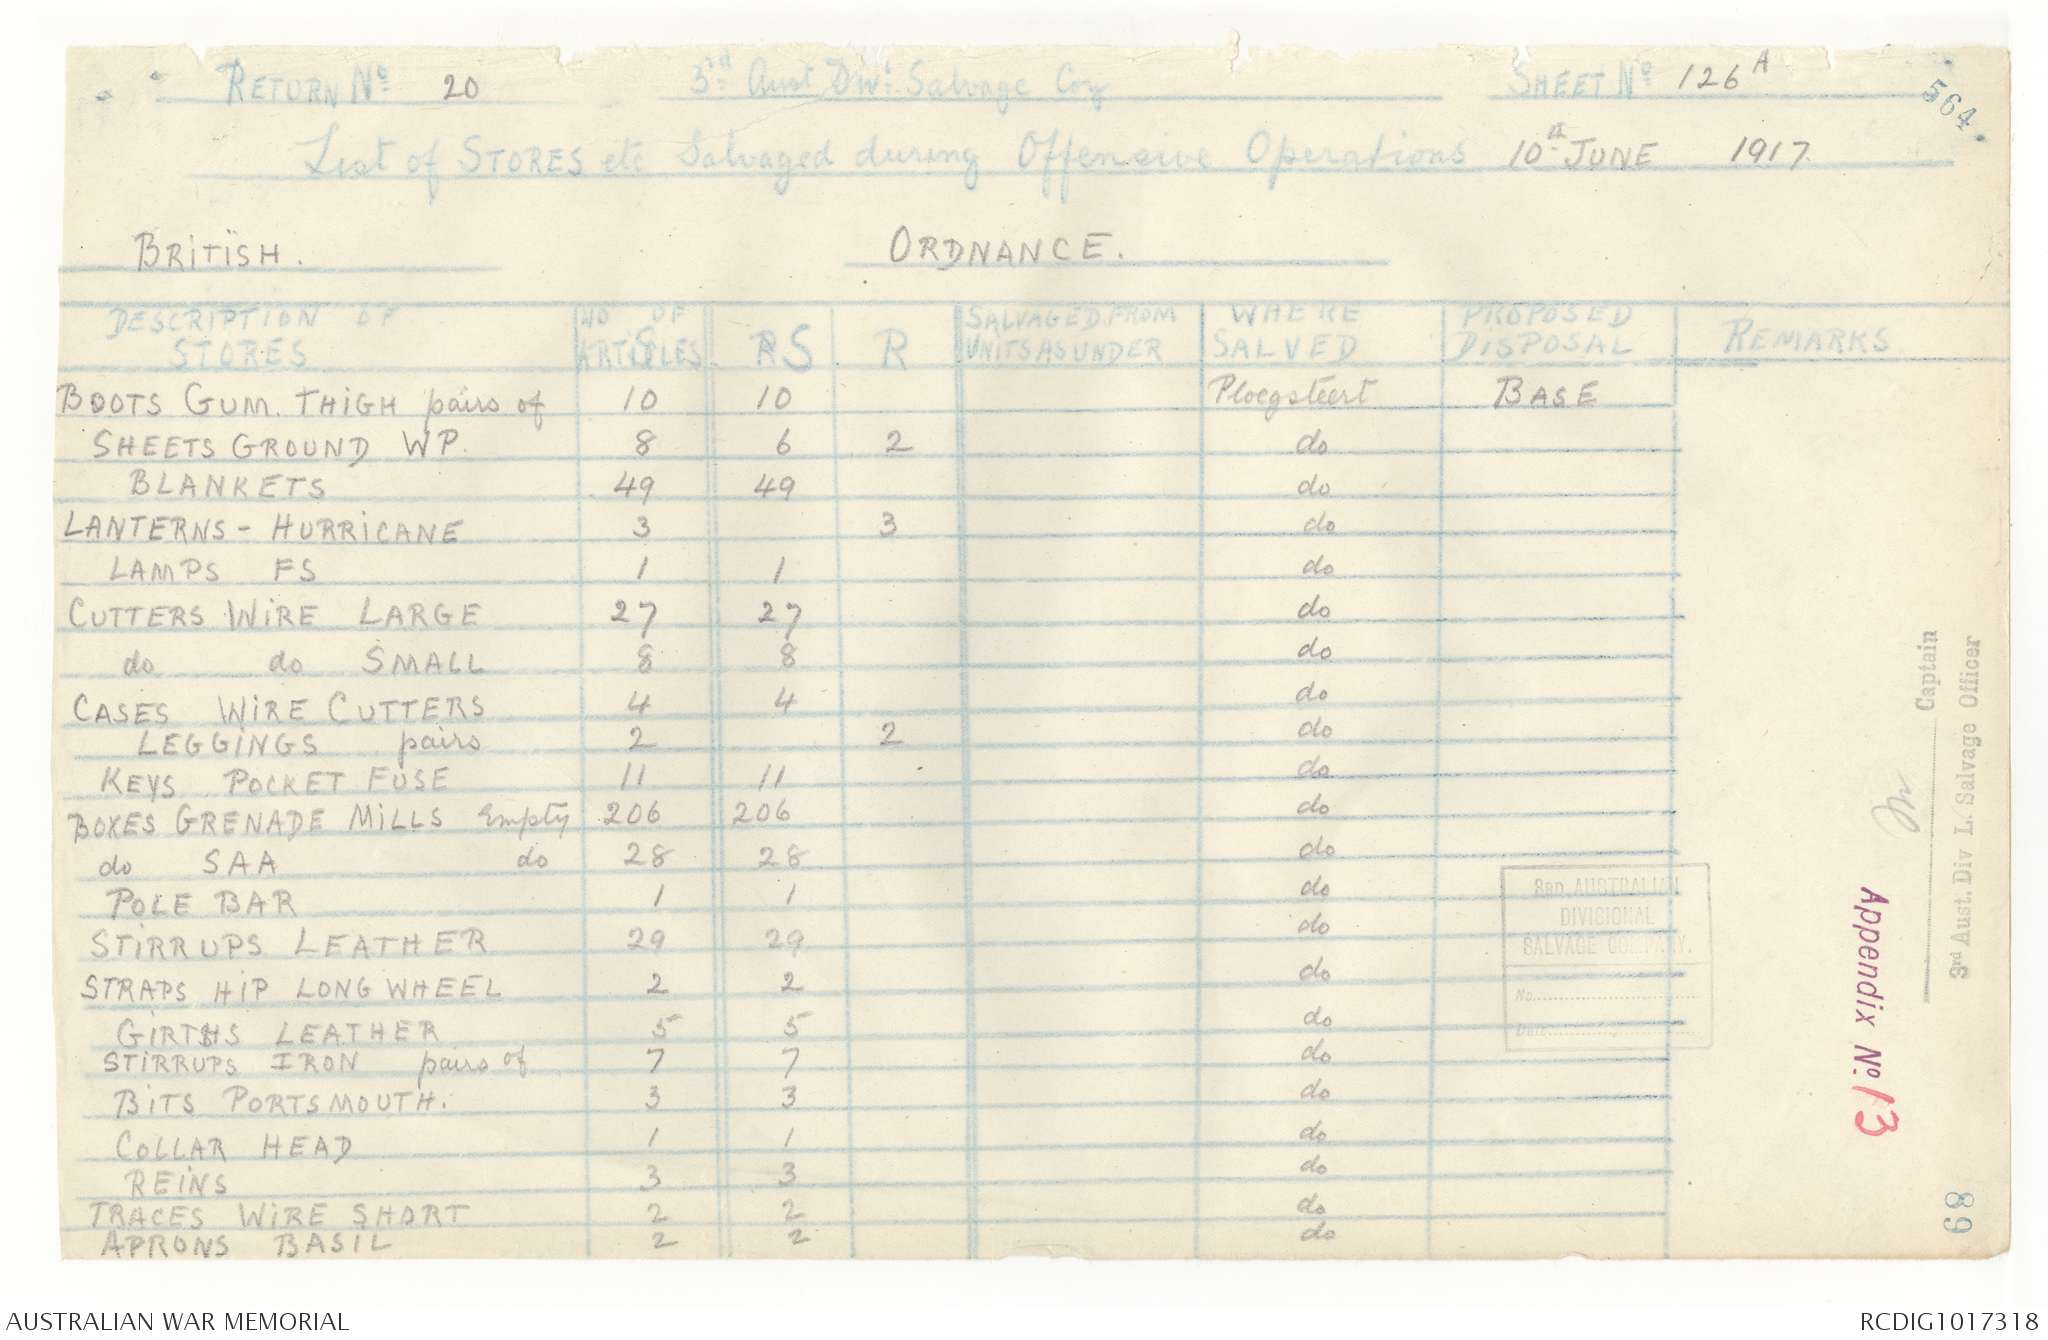 RETURN No 20 3rd Aust Divl Salvage Coy SHEET No 126A
564
List of STORES etc Salvaged during Offensive Operations 10th JUNE 1917
BRITISH. ORDNANCE.
DESCRIPTION OF STORES NO OF ARTICLES S R SALVAGED FROM UNITS AS UNDER WHERE SALVED PROPOSED DISPOSAL REMARKS
BOOTS GUM. THIGH pairs of 10 10 Ploegsteert BASE
SHEETS GROUND WP. 8 6 2 do
BLANKETS 49 49 do
LANTERNS - HURRICANE 3 3 do
LAMPS FS 1 1 do
CUTTERS WIRE LARGE 27 27 do
do do SMALL 8 8 do
CASES WIRE CUTTERS 4 4 do
LEGGINGS pairs 2 2 do
KEYS POCKET FUSE 11 11 do
BOXES GRENADE MILLS Empty 206 206 do
do SAA do 28 28 do
POLE BAR 1 1 do
STIRRUPS LEATHER 29 29 do
STRAPS HIP LONG WHEEL 2 2 do
GIRTHS LEATHER 5 5 do
STIRRUPS IRON pairs of 7 7 do
BITS PORTSMOUTH. 3 3 do
COLLAR HEAD 1 1 do
REINS 3 3 do
TRACES WIRE SHORT 2 2 do
APRONS BASIL 2 2 do
3RD AUSTRALIAN
DIVISIONAL
SALVAGE COMPANY.
No.
Date
Captain
3rd Aust. Div L. Salvage Officer
Appendix No. 13
68
AUSTRALIAN WAR MEMORIAL RCDIG1017318